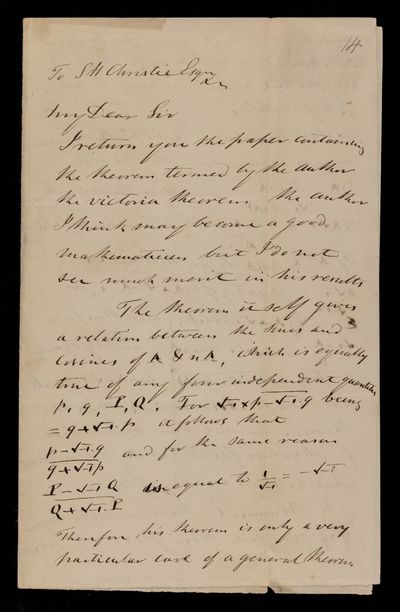 14
To S H Christie Esqr
My Dear Sir
I return you the paper containing
the theorem termed by the author
the victoria theorem. the author
I think may become a good
mathematician but I do not
see much merit in his results
The theorem itself gives
a relation between the sines and
cosines of A & nA, which is equally
true of any four independent quantities
p, q, P, Q. For √-1 × p - √-1.q being
= q + √-1.p it follows that
p - √-1.q / q + √-1p and for the same reason
P - √-1 Q / Q + √-1.P is equal to 1/√-1 = -√-1
Therefore his theorem is only a very
particular case of a general theorem